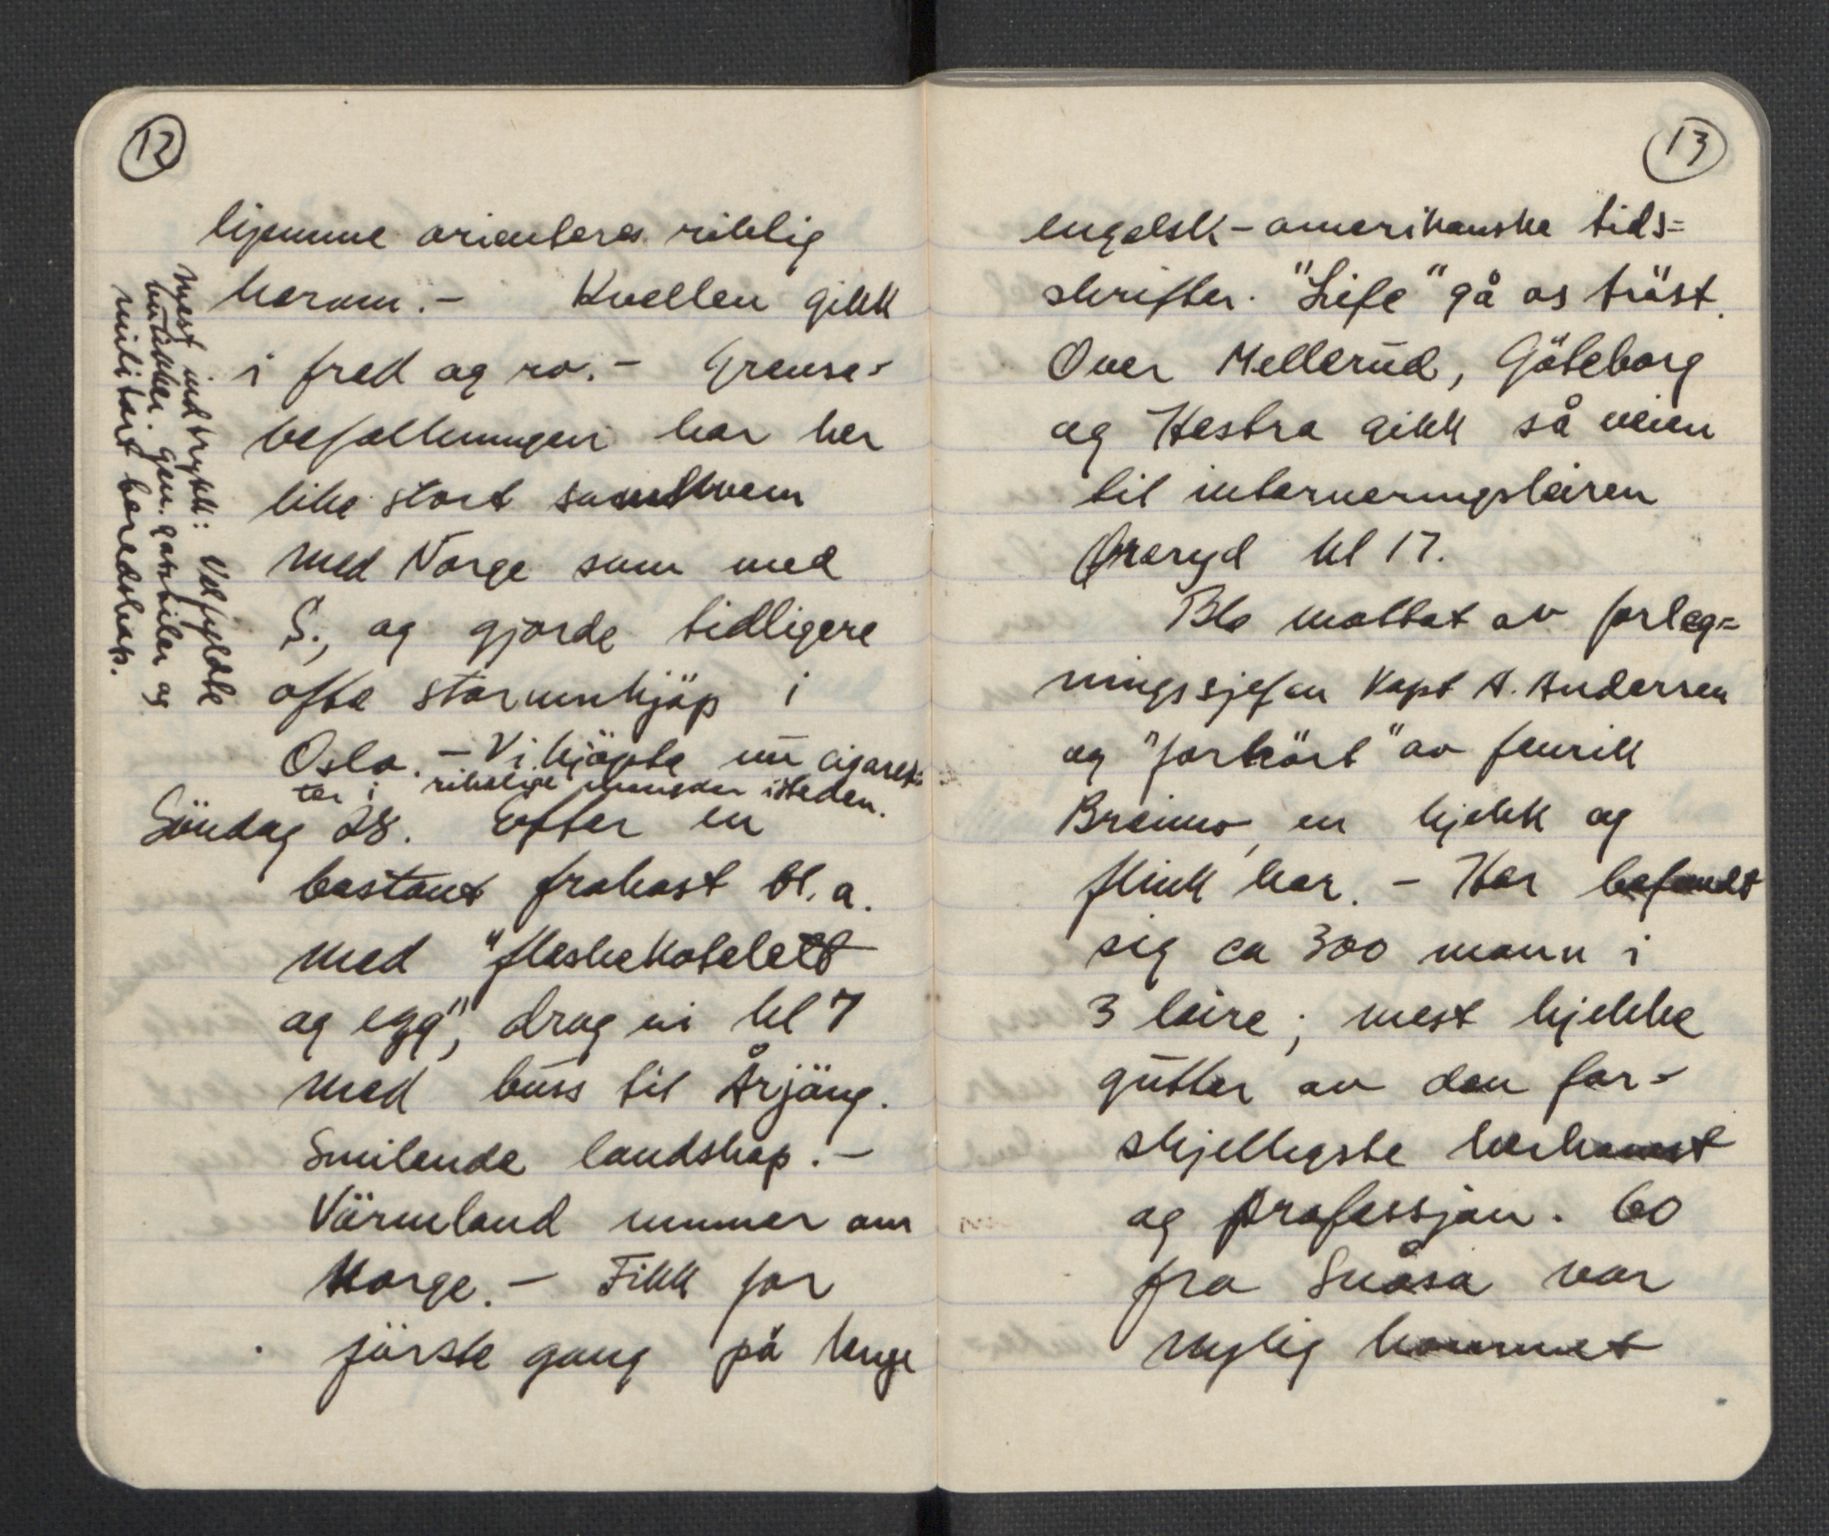 12
hjemme orienteres riktig
herom. - Kvellen gikk
i fred og ro. - Grense=
befolkningen har her
like stort samkvem
med Norge som med
S., og gjorde tidligere
ofte storinnkjöp i
Oslo. - Vi kjöpte nu cigaret=
ter i rikelige mengder isteden.
Söndag 28. Efter en
bastant frokost bl. a.
med "fleskekotelett
og egg", drog vi kl 7
med buss til Årjäng.
Smilende landskap. -
Värmland minner om
Norge. - Fikk for
förste gang på lenge
Mest indtrykk: Velfyldte
butikker, gen. gatbiler og
militært beredskap.
13
engelsk-amerikanske tids=
skrifter. "Life" gå os tröst.
Over Mellerud, Göteborg
og Hestra gikk så veien
til interneringsleiren
Öreryd kl 17.
Ble mottat av forleg=
ningssjefen Kapt A. Andersen
og "forhört" av fenrik
Breimo, en kjekk og
flink kar. - Her befandt
sig ca 300 mann i
3 leire; mest kjekke
gutter av den for=
skjelligste herkomst
og profesjon. 60
fra Snåsa var
nylig kommet